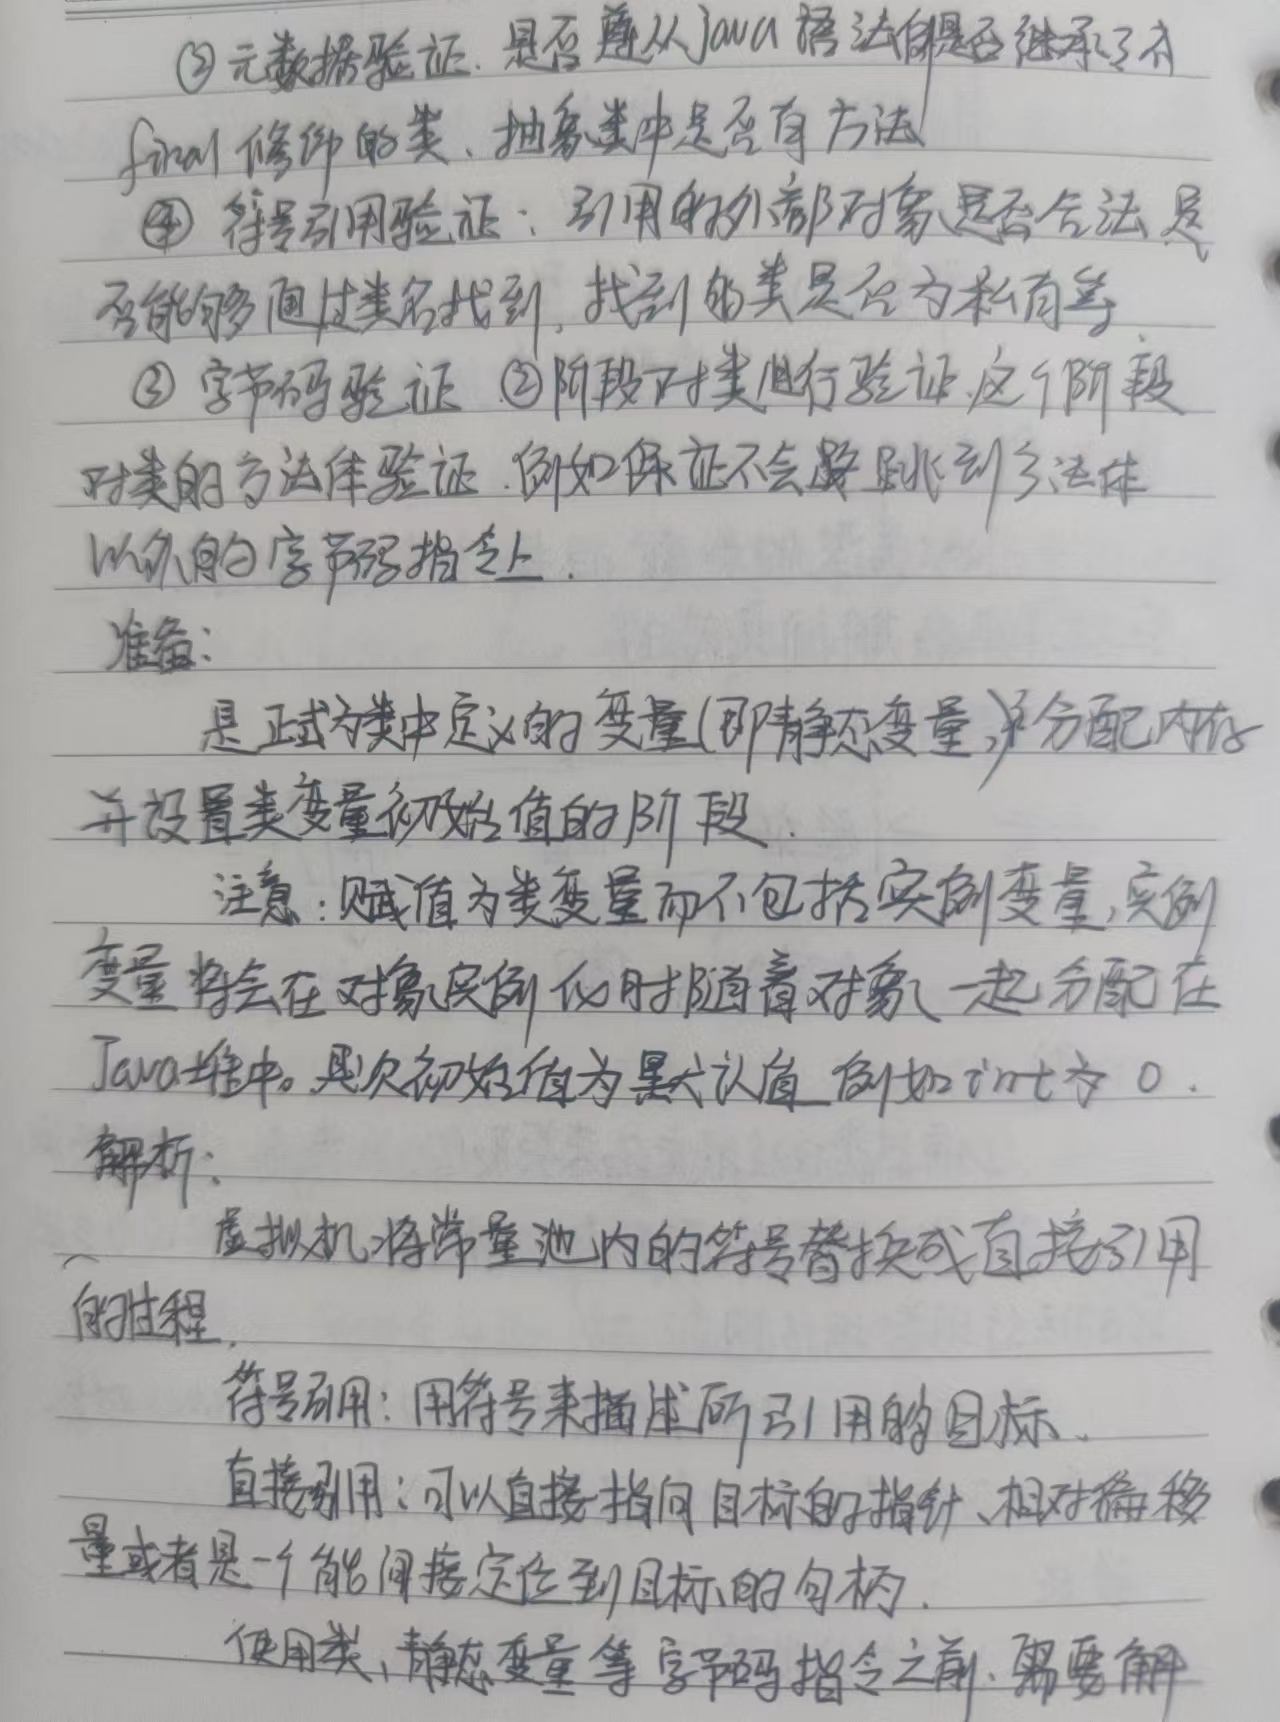 ② 元数据验证. 是否遵从Java语法例是否继承了不
final修饰的类、抽象类中是否有方法
④ 符号引用验证：引用的外部对象是否合法 是
否能够通过类名找到, 找到的类是否为私有等
③ 字节码验证 ②阶段对类进行验证、这个阶段
对类的方法体验证.例如保证不会跳到方法体
以外的字节码指令上.
准备：
是正式为类中定义的变量(即静态变量)分配内存
并设置类变量初始值的阶段.
注意：赋值为类变量而不包括实例变量,实例
变量将会在对象实例化时随着对象一起分配在
Java堆中。其次初始值为默认值 例如int为0.
解析：
虚拟机将常量池内的符号替换成直接引用
的过程.
符号引用：用符号来描述所引用的目标.
直接引用：可以直接指向目标的指针、相对偏移
量或者是一个能间接定位到目标的句柄.
使用类、静态变量等字节码指令之前.需要解